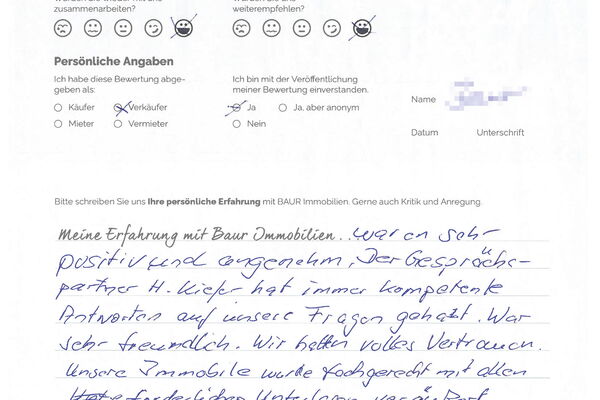 zusammenarbeiten?
weiterempfehlen?
Persönliche Angaben
Ich habe diese Bewertung abge-
geben als:
Ich bin mit der Veröffentlichung
meiner Bewertung einverstanden.
Käufer Verkäufer
Ja Ja, aber anonym
Mieter Vermieter
Nein
Name
Datum Unterschrift
Bitte schreiben Sie uns Ihre persönliche Erfahrung mit BAUR Immobilien. Gerne auch Kritik und Anregung.
Meine Erfahrung mit Baur Immobilien... waren sehr
positiv und angenehm. Der Gesprächs-
partner H. Kiefer hat immer kompetente
Antworten auf unsere Fragen gehabt. War
sehr freundlich. Wir hatten volles Vertrauen.
Unsere Immobilie wurde fachgerecht mit allen
erforderlichen Unterlagen